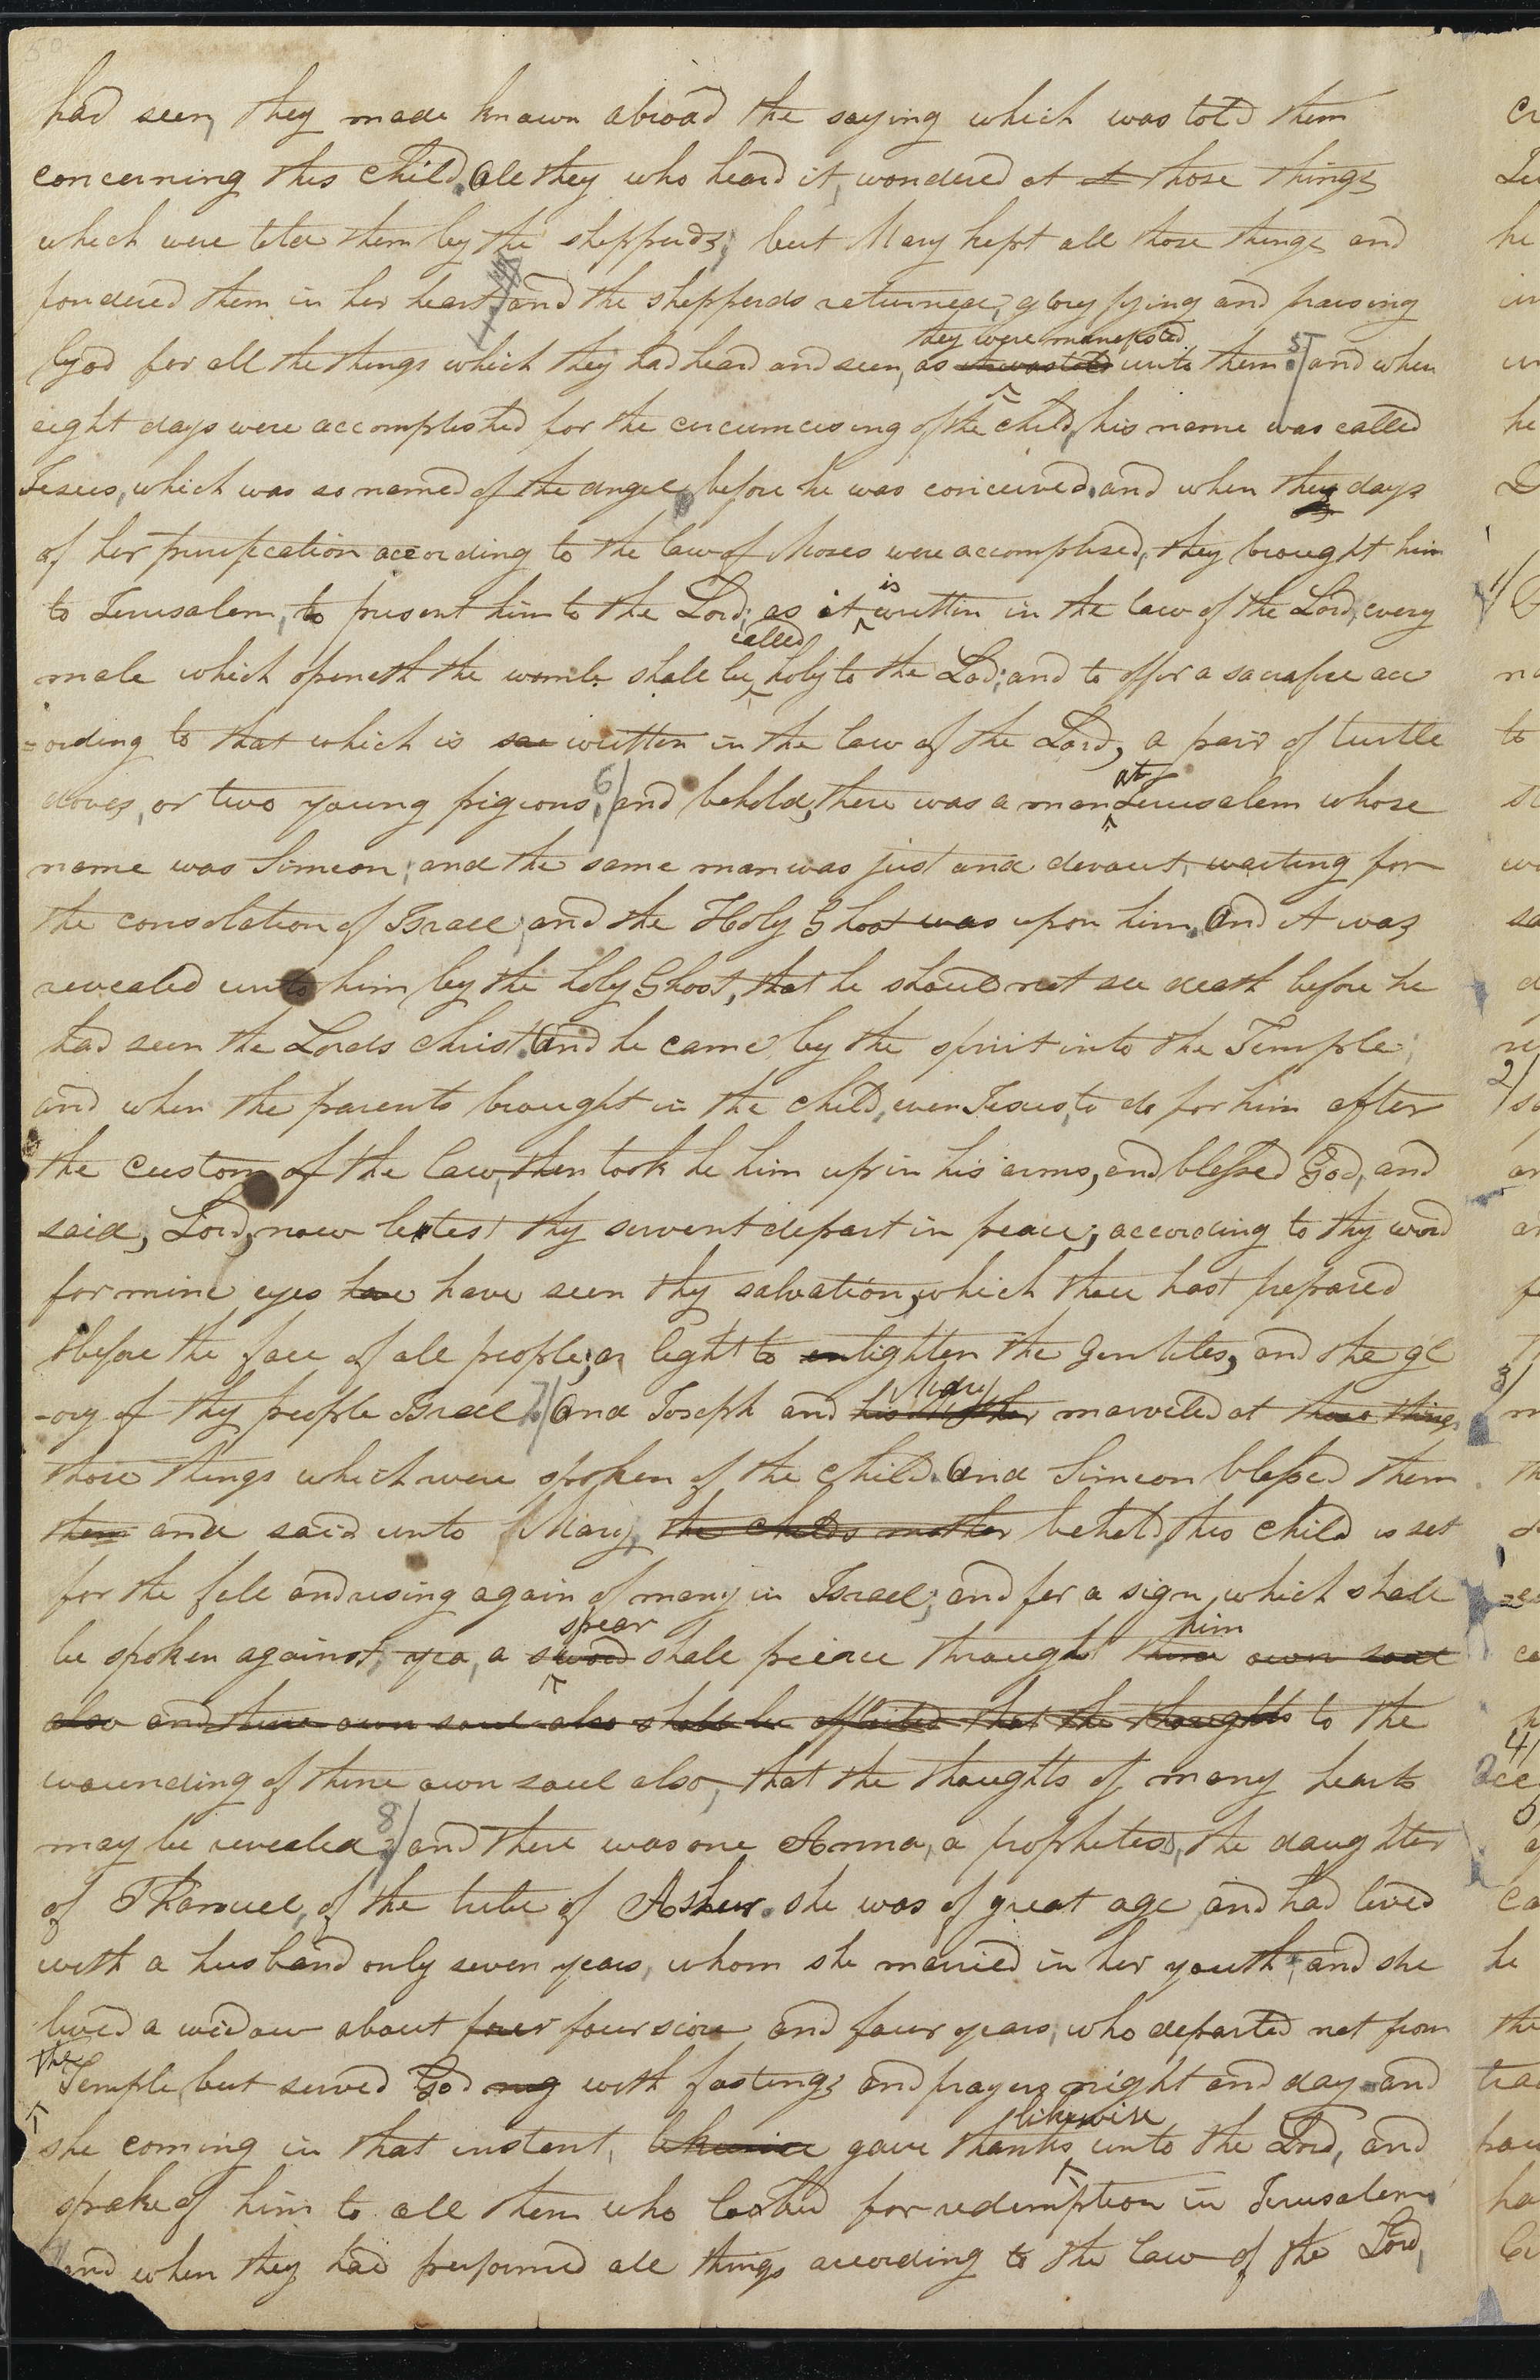 had seen, they made known abroad the saying which was told them
concerning this child. All they who heard it, wondered at at those things
which were told them by the shepperds; but Mary kept all those things and
pondered them in her heart, and the shepperds returned, glory fying and praising
they were manefested 5
God for all the things which they had heard and seen, as it was told unto them. and when
eight days were accomplished for the circumcising of the child, his name was called
Jesus, which was so named of the angel, before he was conceived. and when they days
of her purification according to the law of Moses were accomplised, they brought him
is
to Jerusalem, to present him to the Lord; as it written in the law of the Lord, every
called
male which openeth the womb shall be holy to the Lord; and to offer a sacrafice acc
=ording to that which is sai written in the law of the Lord, a pair of turtle
6 at
doves, or two young pigeons, and behold, there was a man Jerusalem whose
name was Simeon; and the same man was just and devout, waiting for
the consolation of Israel; and the Holy Ghost was upon him. And it was
revealed unto him by the holy Ghost, that he should not see death before he
had seen the Lords christ. And he came by the spirit into the Temple;
and when the parents brought in the child, even Jesus, to do for him after
the custom of the law, then took he him up in his arms, and blessed God, and
said, Lord, now letest thy servent depart in peace; according to thy word
for mine eyes have have seen thy salvation, which thou hast prepared
before the face of all people; a light to enlighten the Gentiles, and the gl
Mary
-ory of thy people Israel. 7 And Joseph and his Mother marveled at those things
those things which were spoken of the child. And Simeon blessed them
them and said unto Mary, the childs mother behold, this child is set
for the fall and rising again of many in Israel; and for a sign which shall
spear him
be spoken against, yea, a sword shall peirce through thine own soul
also and thine own soul also shall be afflicted that the thoughts to the
wounding of thine own soul also, that the thoughts of many hearts
8
may be revealed. and there was one Anna, a prophetess, the daughter
of Phanuel, of the tribe of Asher. she was of great age, and had lived
with a husband only seven years, whom she married in her youth, and she
lived a widow about four four score and four years, who departed not from
the
Temple, but served God nig with fastings and prayers night and day. and
likewise
she coming in that instent, likewise gave thanks unto the Lord, and
spake of him to all them who looked for redemption in Jerusalem.
and when they had preformed all things according to the law of the Lord,
1/
2/
3/
4/